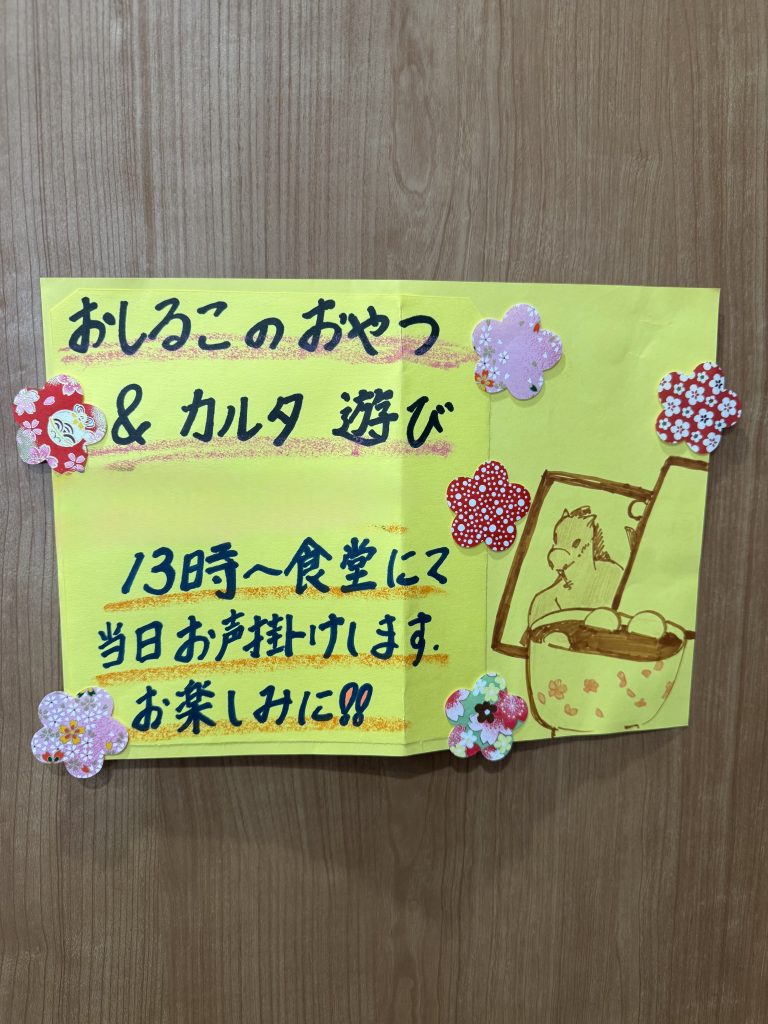 おしるこのおやつ
& カルタ 遊び
13時〜食堂にて
当日お声掛けします.
お楽しみに!!